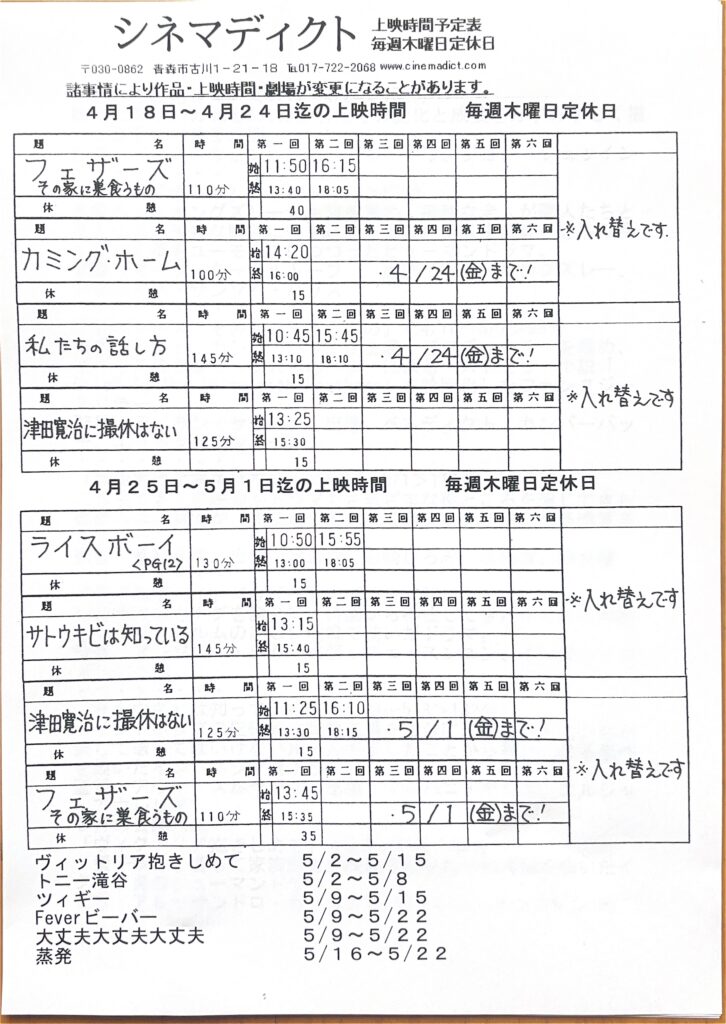 シネマディクト 上映時間予定表
毎週木曜日定休日
〒030-0862 青森市古川1-21-18 ℡017-722-2068 www.cinemadict.com
諸事情により作品・上映時間・劇場が変更になることがあります。
4月18日～4月24日迄の上映時間 毎週木曜日定休日
題 名 時 間 第一回 第二回 第三回 第四回 第五回 第六回
フェザーズ 始 11:50 16:15
その家に巣食うもの 110分 終 13:40 18:05
休 憩 40
※入れ替えです.
題 名 時 間 第一回 第二回 第三回 第四回 第五回 第六回
カミング・ホーム 始 14:20
100分 終 16:00 ・4/24(金)まで!
休 憩 15
題 名 時 間 第一回 第二回 第三回 第四回 第五回 第六回
私たちの話し方 始 10:45 15:45
145分 終 13:10 18:10 ・4/24(金)まで!
休 憩 15
※入れ替えです
題 名 時 間 第一回 第二回 第三回 第四回 第五回 第六回
津田寛治に撮休はない 始 13:25
125分 終 15:30
休 憩 15
4月25日～5月1日迄の上映時間 毎週木曜日定休日
題 名 時 間 第一回 第二回 第三回 第四回 第五回 第六回
ライスボーイ 始 10:50 15:55
<PG12> 130分 終 13:00 18:05
休 憩 15
※入れ替えです
題 名 時 間 第一回 第二回 第三回 第四回 第五回 第六回
サトウキビは知っている 始 13:15
145分 終 15:40
休 憩 15
題 名 時 間 第一回 第二回 第三回 第四回 第五回 第六回
津田寛治に撮休はない 始 11:25 16:10
125分 終 13:30 18:15 ・5/1(金)まで!
休 憩 15
※入れ替えです
題 名 時 間 第一回 第二回 第三回 第四回 第五回 第六回
フェザーズ 始 13:45
その家に巣食うもの 110分 終 15:35 ・5/1(金)まで!
休 憩 35
ヴィットリア抱きしめて 5/2～5/15
トニー滝谷 5/2～5/8
ツィギー 5/9～5/15
Feverビーバー 5/9～5/22
大丈夫大丈夫大丈夫 5/9～5/22
蒸発 5/16～5/22